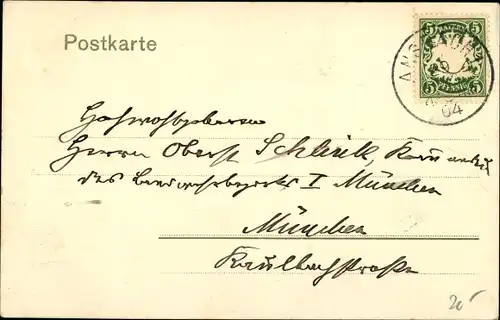 Postkarte
BAYERN
5 5
PFENNIG
5 5
04
Hochwohlgeboren
Herrn Oberst Schlenk,
des Landwehrbezirks I München
München
Kaulbachstraße
20